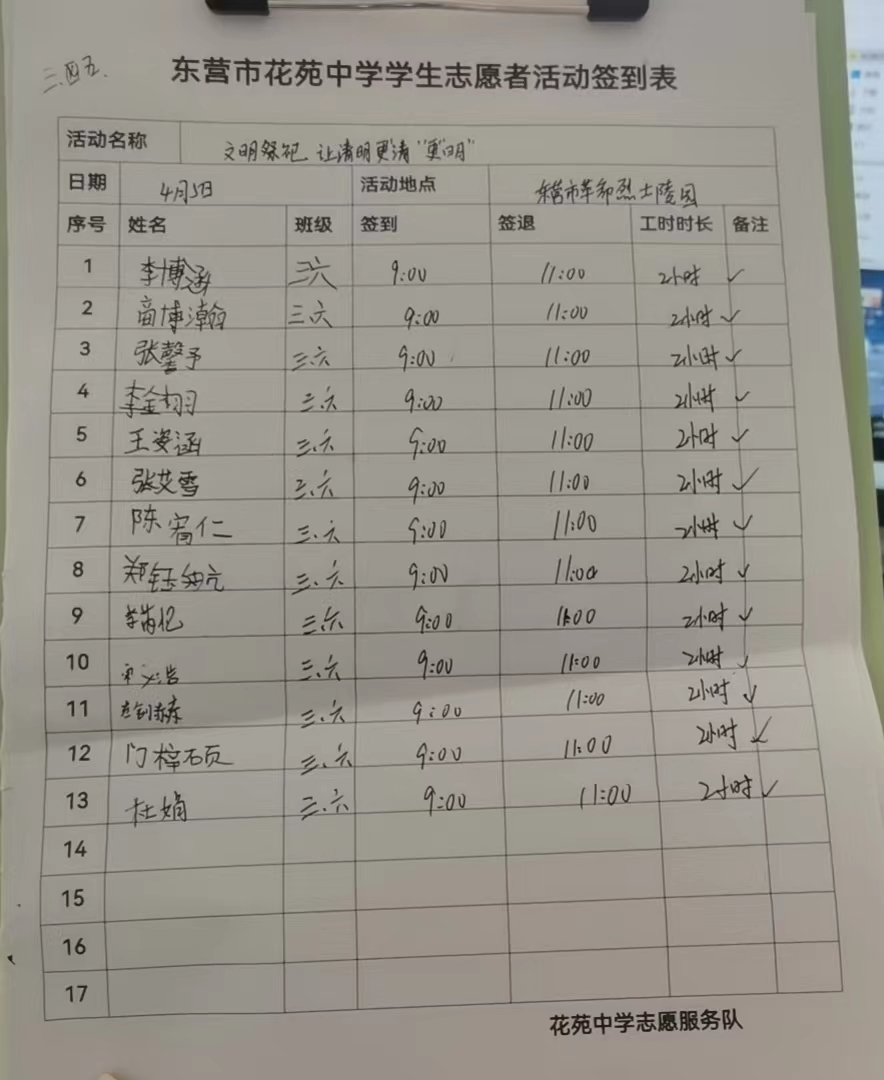 三.四五.
东营市花苑中学学生志愿者活动签到表
活动名称 文明祭祀 让清明更清"更"明"
日期 4月5日 活动地点 东营市革命烈士陵园
序号 姓名 班级 签到 签退 工时时长 备注
1 李博涵 三.六 9:00 11:00 2小时 ✓
2 商博瀚 三.六 9:00 11:00 2小时 ✓
3 张馨予 三.六 9:00 11:00 2小时 ✓
4 李金栩 三.六 9:00 11:00 2小时 ✓
5 王姿涵 三.六 9:00 11:00 2小时 ✓
6 张艾雪 三.六 9:00 11:00 2小时 ✓
7 陈宥仁 三.六 9:00 11:00 2小时 ✓
8 郑钰 三.六 9:00 11:00 2小时 ✓
9 三.六 9:00 11:00 2小时 ✓
10 三.六 9:00 11:00 2小时 ✓
11 三.六 9:00 11:00 2小时 ✓
12 门梓硕 三.六 9:00 11:00 2小时 ✓
13 杜娟 三.六 9:00 11:00 2小时 ✓
14
15
16
17
花苑中学志愿服务队